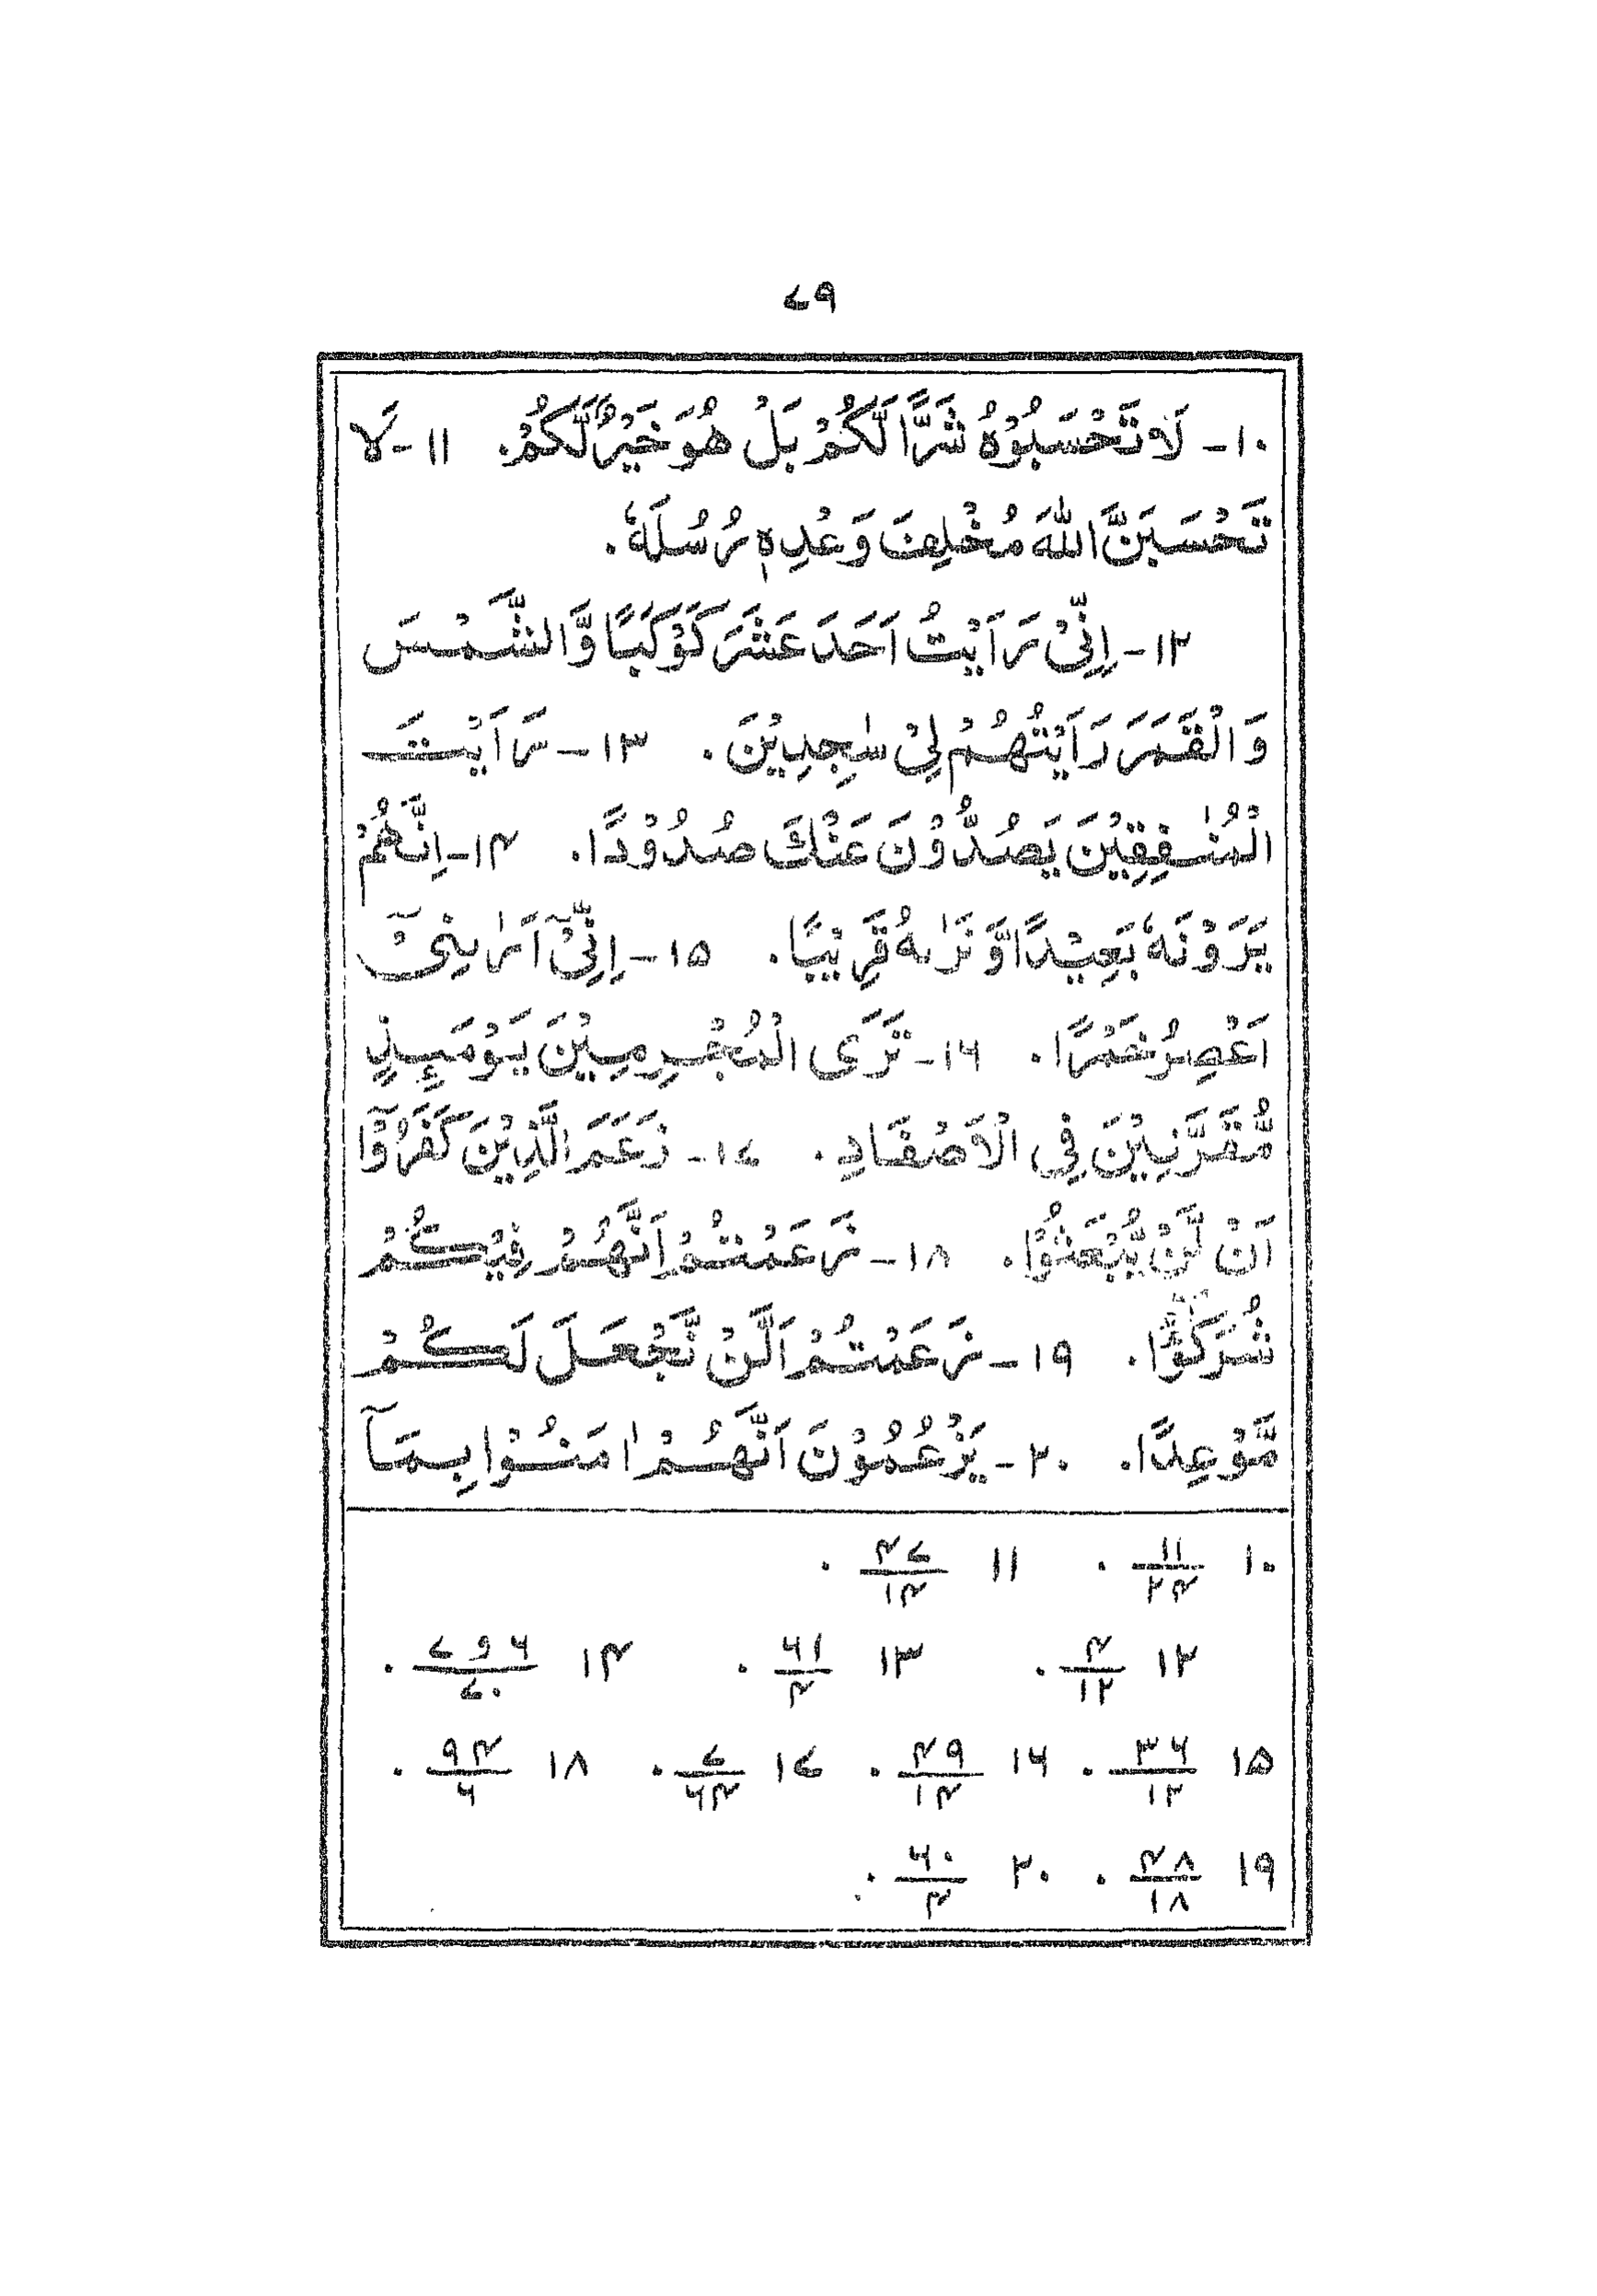 ۷۹
۱۰- لَا تَحْسَبُوْهُ شَرًّا لَّكُمْ بَلْ هُوَ خَيْرٌ لَّكُمْ. ۱۱- لَا
تَحْسَبَنَّ اللّٰهَ مُخْلِفَ وَعْدِهٖ رُسُلَهٗ.
۱۲- اِنِّىْ رَاَيْتُ اَحَدَ عَشَرَ كَوْكَبًا وَّالشَّمْسَ
وَالْقَمَرَ رَاَيْتُهُمْ لِىْ سٰجِدِيْنَ. ۱۳- رَاَيْتَ
الْمُنٰفِقِيْنَ يَصُدُّوْنَ عَنْكَ صُدُوْدًا. ۱۴- اِنَّهُمْ
يَرَوْنَهٗ بَعِيْدًا وَّنَرٰىهُ قَرِيْبًا. ۱۵- اِنِّىْٓ اَرٰىنِىْٓ
اَعْصِرُ خَمْرًا. ۱۶- تَرَى الْمُجْرِمِيْنَ يَوْمَئِذٍ
مُّقَرَّنِيْنَ فِى الْاَصْفَادِ. ۱۷- زَعَمَ الَّذِيْنَ كَفَرُوْٓا
اَنْ لَّنْ يُّبْعَثُوْا. ۱۸- زَعَمْتُمْ اَنَّهُمْ فِيْكُمْ
شُرَكٰٓؤُا. ۱۹- زَعَمْتُمْ اَلَّنْ نَّجْعَلَ لَكُمْ
مَّوْعِدًا. ۲۰- يَزْعُمُوْنَ اَنَّهُمْ اٰمَنُوْا بِمَآ
۱۰ ۱۱/۲۴ . ۱۱ ۴۷/۱۴ .
۱۲ ۴/۱۲ . ۱۳ ۶۱/۴ . ۱۴ ۶ و ۷/۷۰ .
۱۵ ۳۶/۱۲ . ۱۶ ۴۹/۱۴ . ۱۷ ۷/۶۴ . ۱۸ ۹۴/۶ .
۱۹ ۴۸/۱۸ . ۲۰ ۶۰/۴ .